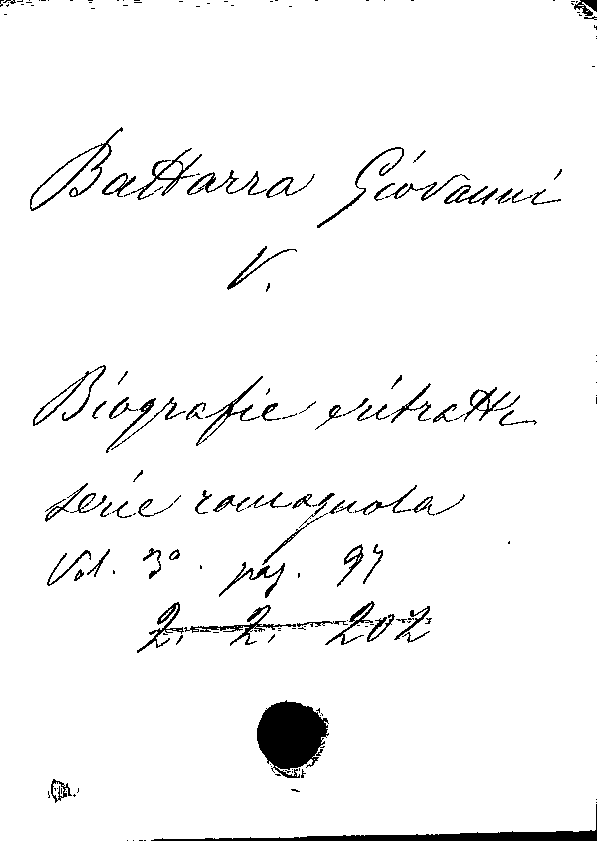 Battarra Giovanni
V.
Biografie e ritratti
serie romagnola
Vol. 3º. pag. 97
2. 2. 202